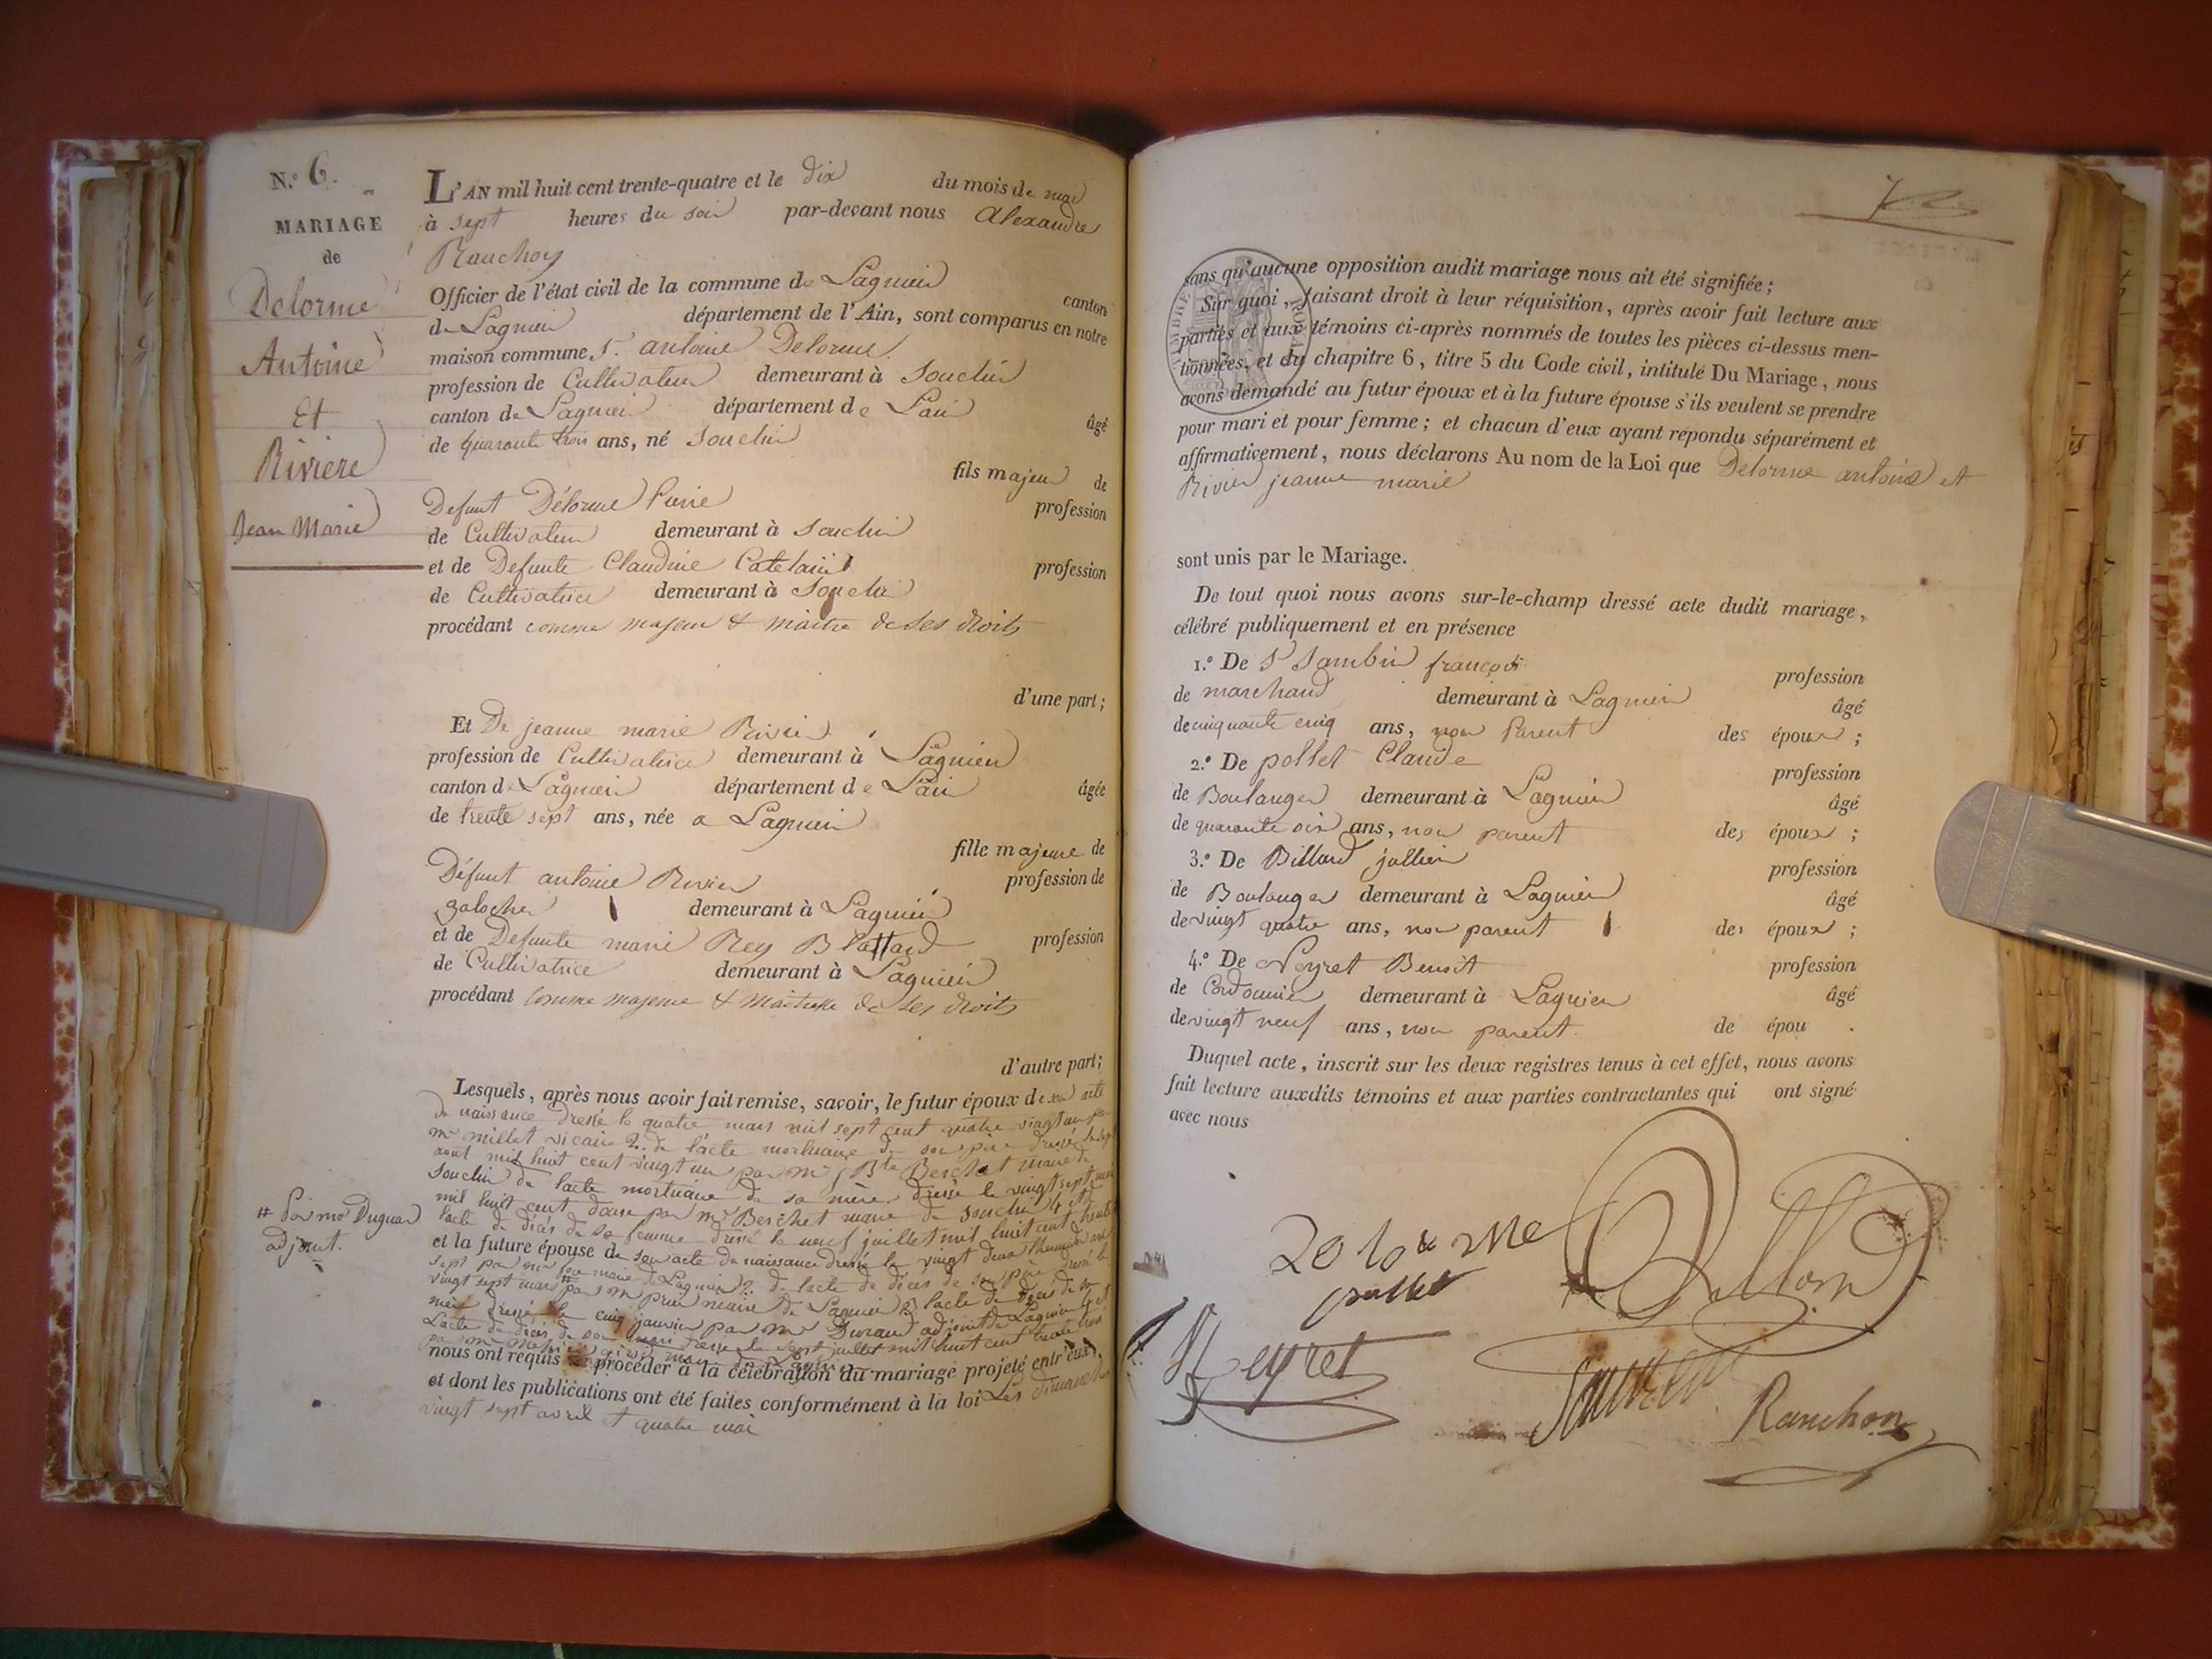 N.º 6.
MARIAGE
de
Delorme
Antoine
Et
Riviere
Jean Marie
L'AN mil huit cent trente-quatre et le dix du mois de mai
à sept heures du soir par-devant nous Alexandre
Ranchon
Officier de l'état civil de la commune de Lagnieu canton
de Lagnieu département de l'Ain, sont comparus en notre
maison commune, S.r antoine Delorme
profession de Cultivateur demeurant à Souclin
canton de Lagnieu département de Lain âgé
de quarante trois ans, né Souclin
fils majeur de
Defunt Délorme Pierre profession
de Cultivateur demeurant à Souclin
et de Defunte Claudine Catelain profession
de Cultivatrice demeurant à Souclin
procédant comme majeur & maitre de ses droits
d'une part;
Et De jeanne marie Rivier
profession de Cultivatrice demeurant à Lagnieu
canton de Lagnieu département de Lain âgée
de trente sept ans, née a Lagnieu
fille majeure de
Défunt antoine Rivier profession de
galocher demeurant à Lagnieu
et de Defunte marie Rey Blattard profession
de Cultivatrice demeurant à Lagnieu
procédant comme majeure & maitresse de ses droits
d'autre part;
Lesquels, après nous avoir fait remise, savoir, le futur époux de son acte
de naissance dressé le quatre mars mil sept cent quatre vingt un par
mr millet vicaire 2.º de l'acte mortuaire de son père dressé le sept
aout mil huit cent vingt un par mr J Bte Berchet maire de
Souclin de lacte mortuaire de sa mère dressé le vingt sept
mil huit cent douze par mr Berchet maire de Souclin 4.º de
lacte de décés de sa femme dressé le neuf juillet mil huit cent trente
et la future épouse de son acte de naissance dressé le vingt deux
sept par mr maire de Lagnieu 2.º de lacte de décés de son père dressé le
vingt sept mars # par mr maire de Lagnieu 3 lacte de décés de sa
mère dressé le cinq janvier par mr Durand adjoint de Lagnieu
Lacte de décés de son mari dressé le sept juillet mil huit cent trente trois
par mr
# Par mr Dugnar
adjoint.
nous ont requis de procéder à la célébration du mariage projeté entr'eux,
et dont les publications ont été faites conformément à la loi Les dimanches
vingt sept avril et quatre mai
sans qu'aucune opposition audit mariage nous ait été signifiée;
Sur quoi, faisant droit à leur réquisition, après avoir fait lecture aux
parties et aux témoins ci-après nommés de toutes les pièces ci-dessus men-
tionnées, et du chapitre 6, titre 5 du Code civil, intitulé Du Mariage, nous
avons demandé au futur époux et à la future épouse s'ils veulent se prendre
pour mari et pour femme; et chacun d'eux ayant repondu séparément et
affirmativement, nous déclarons Au nom de la Loi que Delorme antoine et
Rivier jeanne marie
sont unis par le Mariage.
De tout quoi nous avons sur-le-champ dressé acte dudit mariage,
célébré publiquement et en présence
1.º De S.r Sambin françois profession
de marchand demeurant à Lagnieu âgé
de cinquante cinq ans, non Parent des époux;
2.º De pollet Claude profession
de Boulanger demeurant à Lagnieu âgé
de quarante six ans, non parent des époux;
3.º De Billard jullien profession
de Boulanger demeurant à Lagnieu âgé
de vingt quatre ans, non parent des époux;
4.º De Neyret Benoit profession
de Cordonnier demeurant à Lagnieu âgé
de vingt neuf ans, non parent de épou .
Duquel acte, inscrit sur les deux registres tenus à cet effet, nous avons
fait lecture auxdits témoins et aux parties contractantes qui ont signé
avec nous
pollet
Neyret
Ranchon